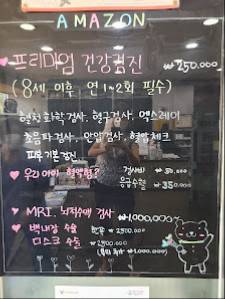 AMAZON
♥ 프리미엄 건강검진 ₩250.000
(8세 이후 연 1~2회 필수)
혈청화학검사, 혈구검사, 엑스레이
초음파검사, 안압검사, 혈압체크
피부기본검진
♥ 우리 아이 혈액형? 검사비 ₩50,000
응급수혈 ₩350,000
♥ MRI, 뇌척수액 검사 ₩1,000,000
♥ 백내장 수술
디스크 수술